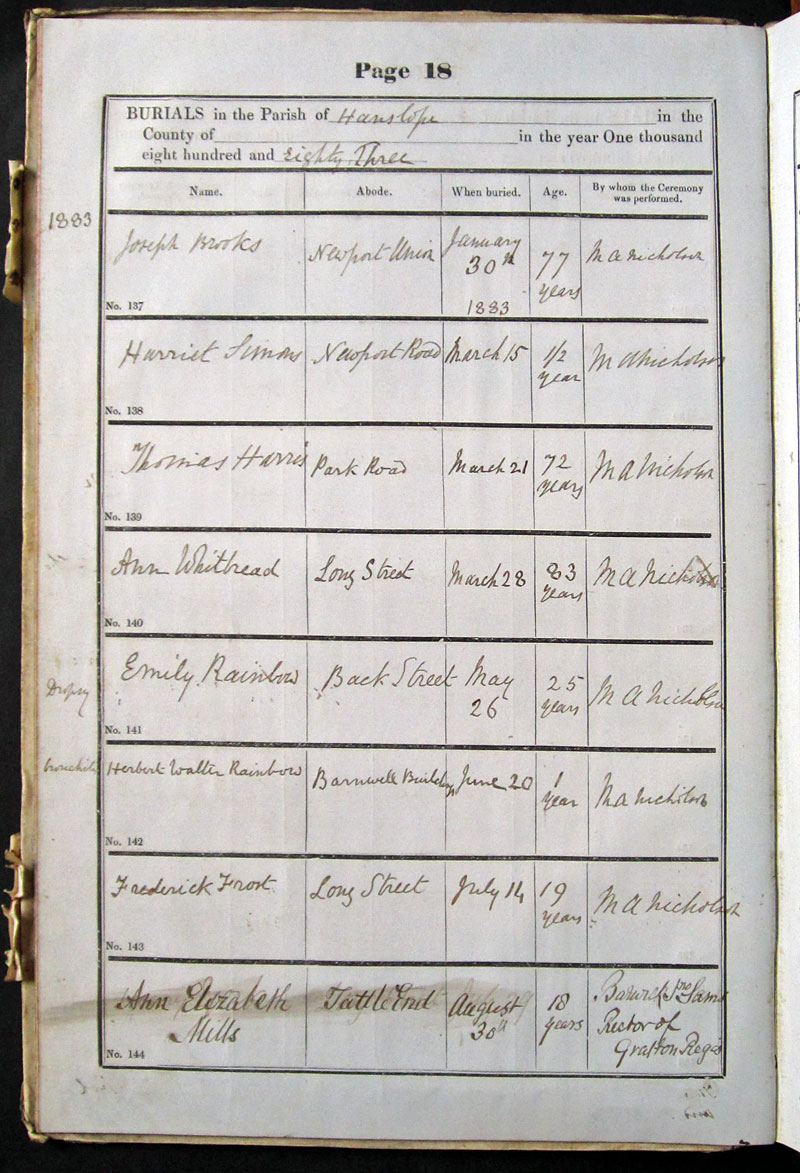 Page 18
BURIALS in the Parish of Hanslope in the
County of in the year One thousand
eight hundred and Eighty Three
Name. Abode. When buried. Age. By whom the Ceremony was performed.
1883
Joseph Brooks Newport Union January 30th 1883 77 years M A Nicholson
No. 137
Harriet Simons Newport Road March 15 1/2 year M A Nicholson
No. 138
Thomas Harris Park Road March 21 72 years M A Nicholson
No. 139
Ann Whitbread Long Street March 28 83 years M A Nicholson
No. 140
Dropsy
Emily Rainbow Back Street May 26 25 years M A Nicholson
No. 141
bronchitis
Herbert Walter Rainbow Barnwell Buildings June 20 1 year M A Nicholson
No. 142
Frederick Frost Long Street July 14 19 years M A Nicholson
No. 143
Ann Elizabeth Mills Tattle End August 30th 18 years Barwick Jno Sams Rector of Grafton Regis
No. 144